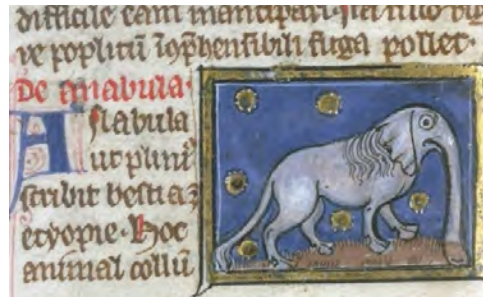 difficile eam mancipari
ve poplitū īcōp̄hensibili fuga pollet.
De anabula.
Anabula
ut plini᷒
scribit bestia ē
etyopie. Hoc
animal collū